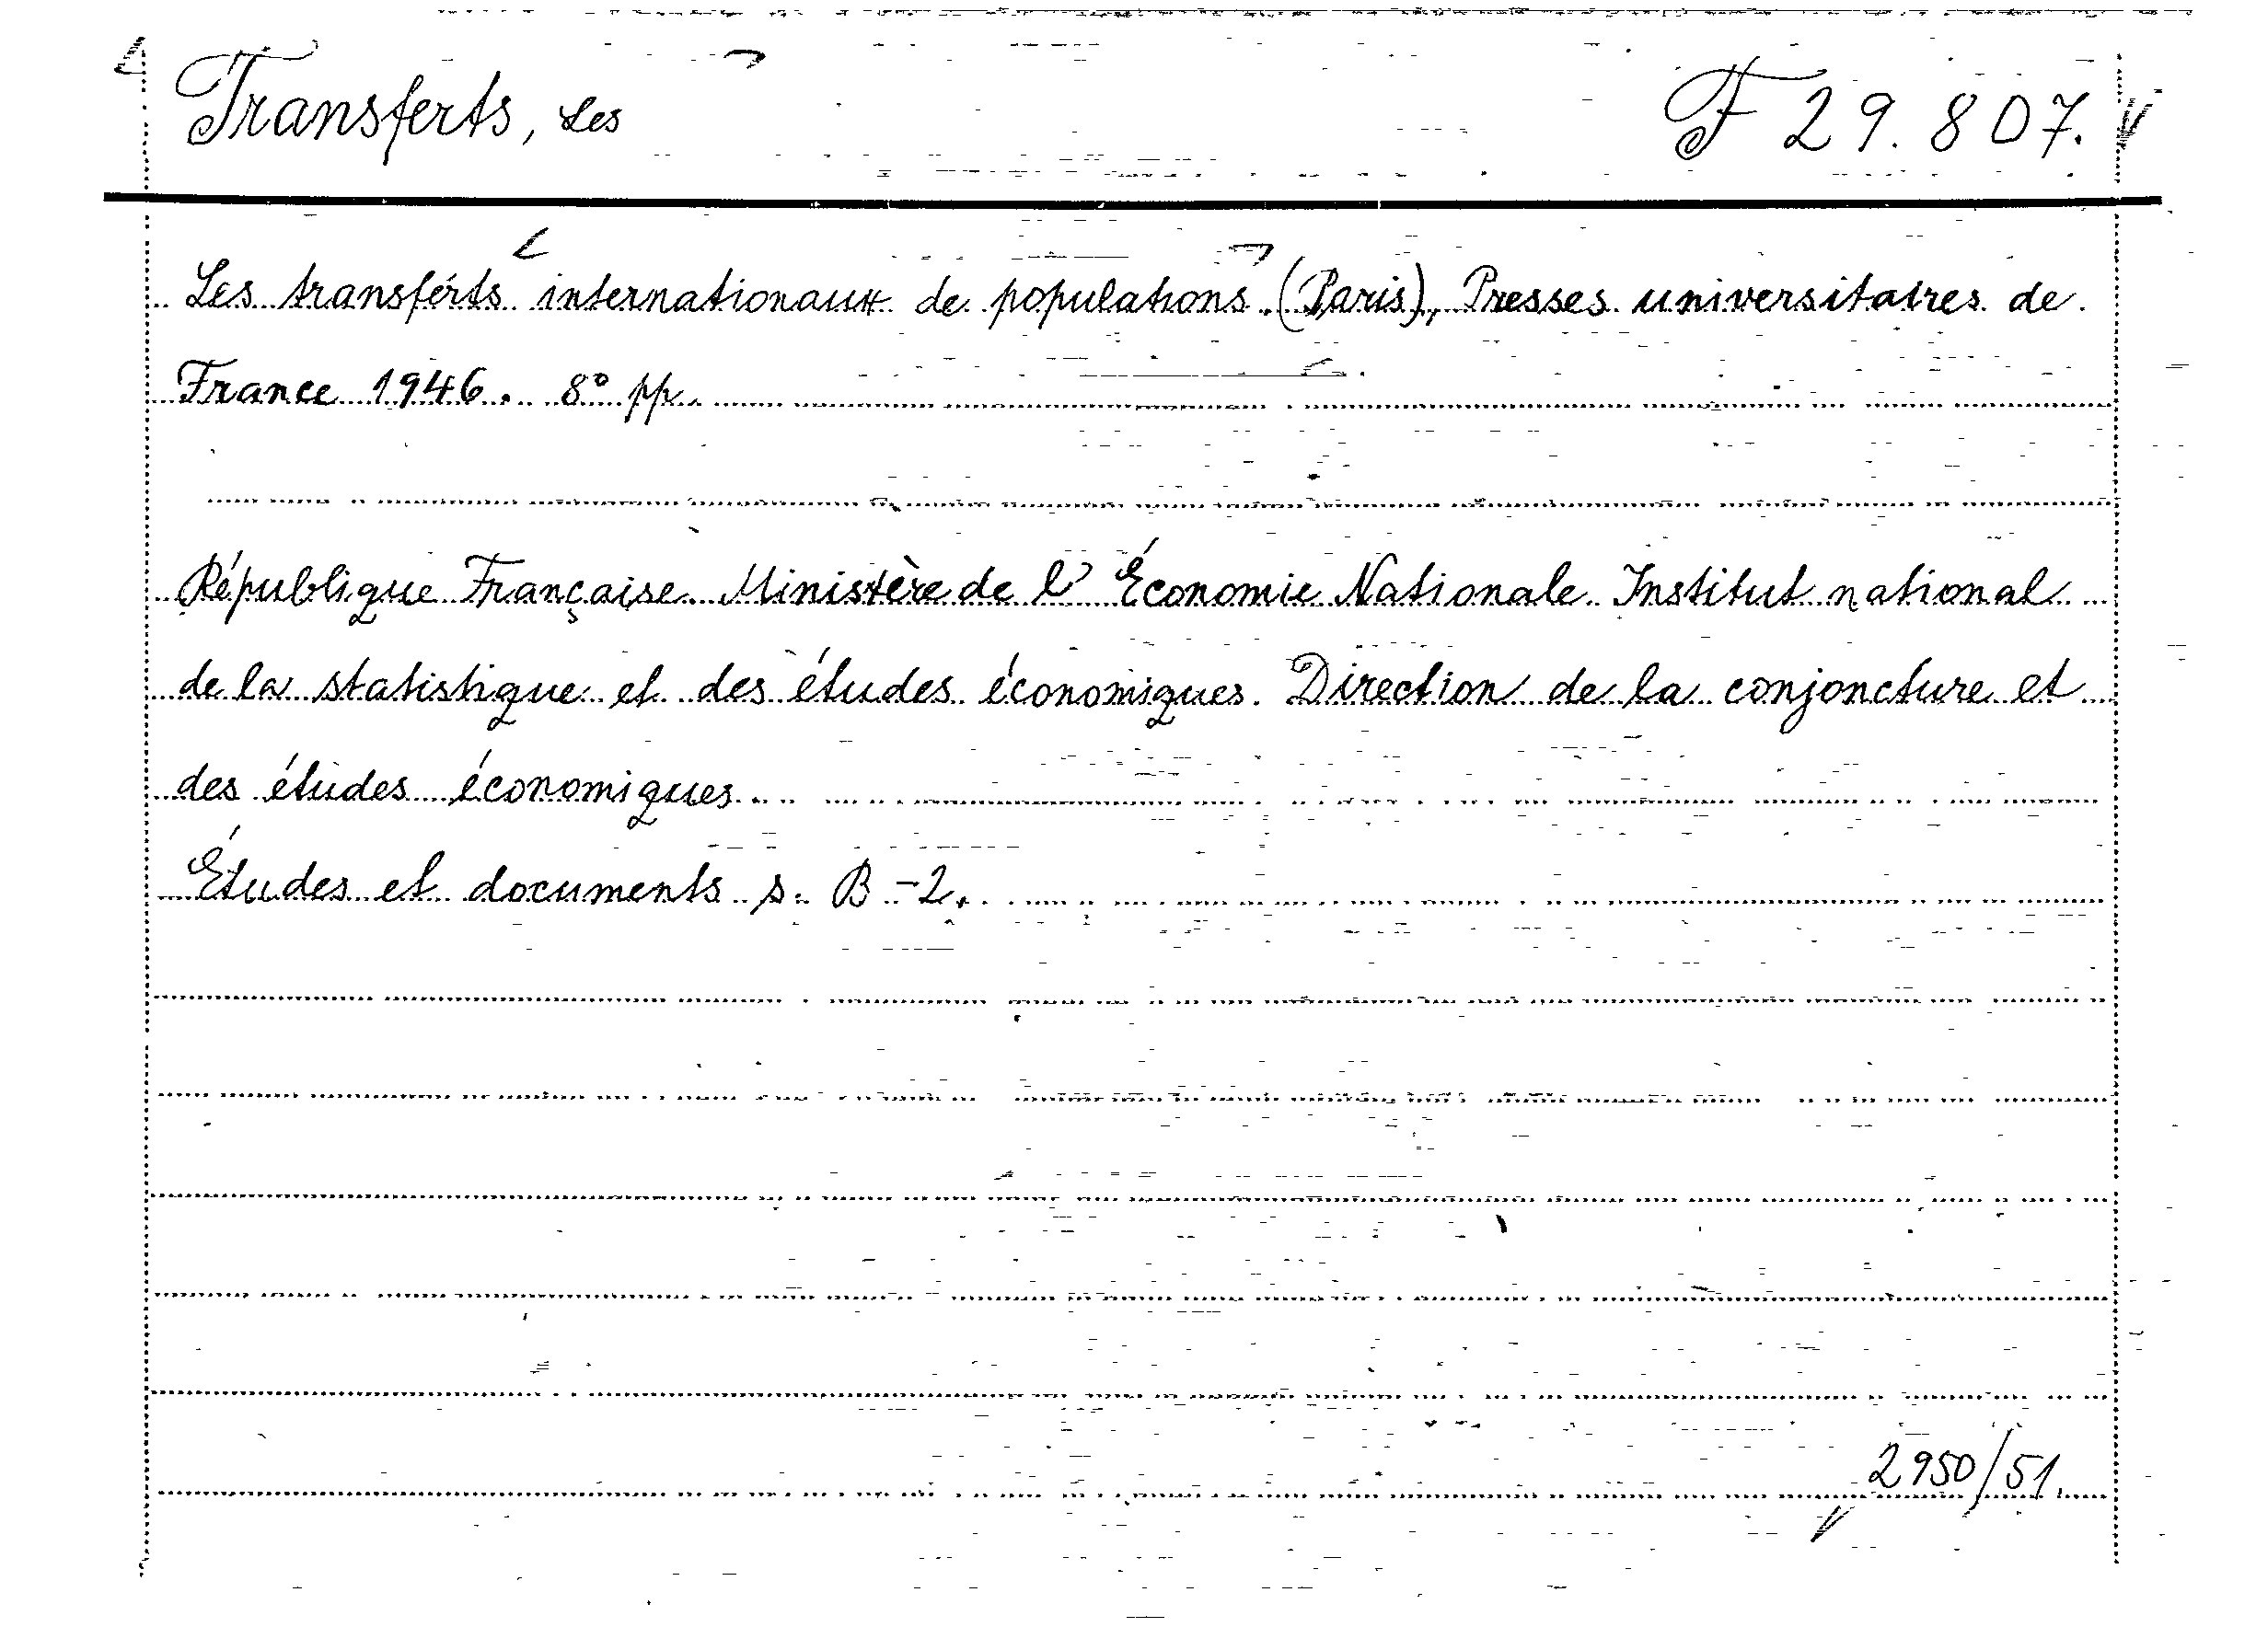 Transferts, Les
F 29.807.
Les transférts internationaux de populations. (Paris), Presses universitaires de
France 1946. 8° pp.
République Française. Ministère de l' Économie Nationale. Institut national
de la statistique et des études économiques. Direction de la conjoncture et
des études économiques.
Études et documents s. B-2.
2950/51.